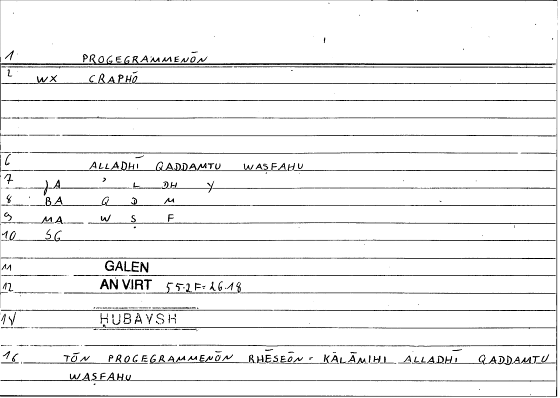 1 PROGEGRAMMENŌN
2 WX CRAPHŌ
6 ALLADHĪ QADDAMTU WAṢFAHU
7 JA ʾ L DH Y
8 BA Q D M
9 MA W Ṣ F
10 SG
11 GALEN
12 AN VIRT 552F=26.18
14 ḤUBAYSH
16 TŌN PROGEGRAMMENŌN RHĒSEŌN = KALĀMIHI ALLADHĪ QADDAMTU
WAṢFAHU